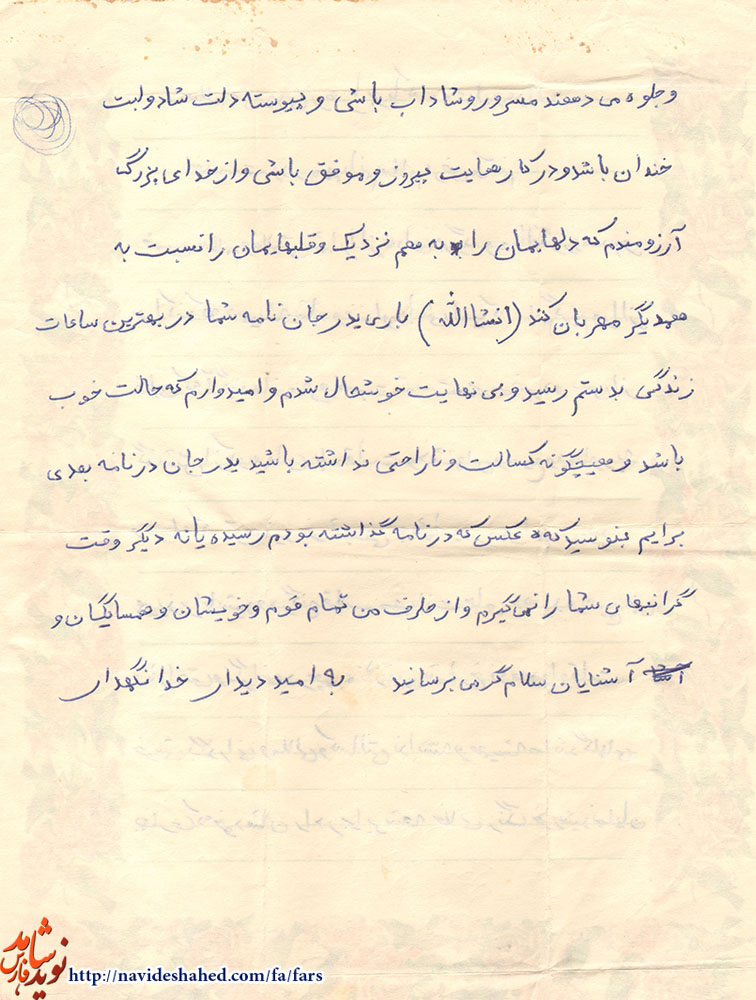 وجلوه می دهند مسرور و شاداب باشی و پیوسته دلت شاد و لبت
خندان باشد و در کارهایت پیروز و موفق باشی و از خدای بزرگ
آرزومندم که دلهایمان را به هم نزدیک و قلبهایمان را نسبت به
همدیگر مهربان کند (انشاالله) باری پدر جان نامه شما در بهترین ساعات
زندگی بدستم رسید و بی نهایت خوشحال شدم و امیدوارم که حالت خوب
باشد و هیچگونه کسالت و ناراحتی نداشته باشید پدر جان در نامه بعدی
برایم بنویسید که عکس که در نامه گذاشته بودم رسیده یا نه دیگر وقت
گرانبهای شما را نمی گیرم و از طرف من تمام قوم و خویشان و همسایگان و
آشنایان سلام گرمی برسانید به امید دیدار خدانگهدار
نوید شاهد فارس
http://navideshahed.com/fa/fars